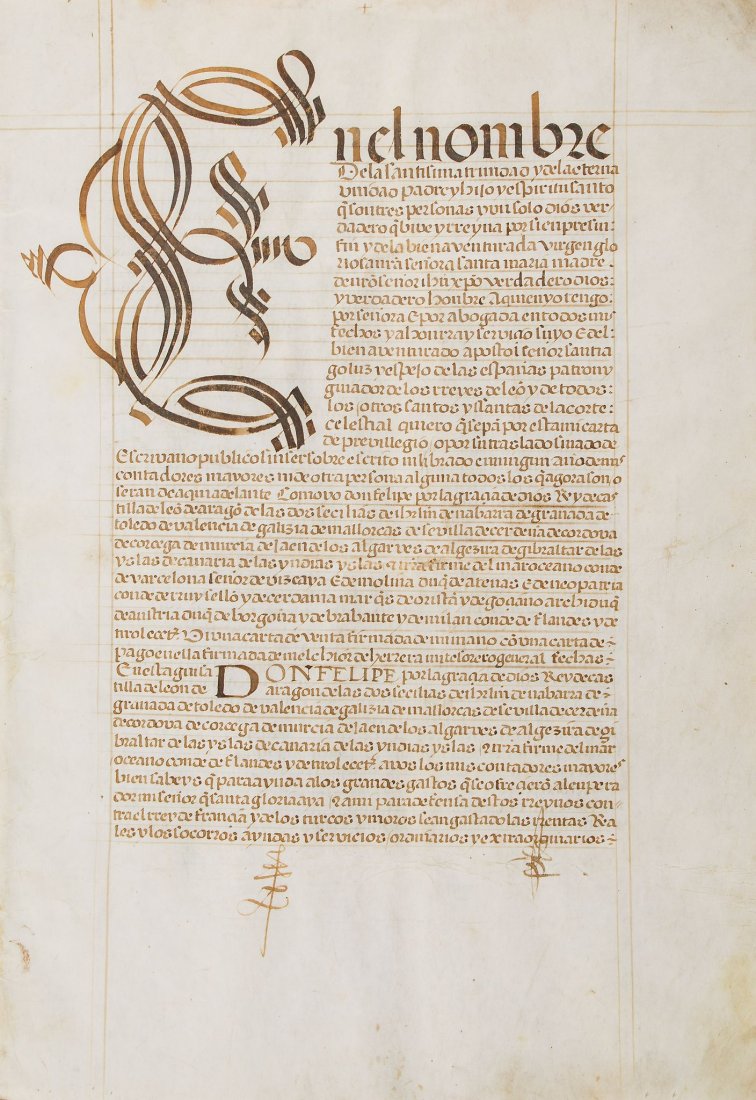 En el nombre
De la santisima trinidad y de la eterna
unidad padre y hijo y espiritu santo
q̃ son tres personas y un solo dios ver
dadero q̃ bive y rreyna por sienpre sin
fin y de la bienaventurada virgen glo
riosa nr̃a señora santa maria madre
de nr̃o señor ihũ xp̃o verdadero dios:
y verdadero honbre Aquien yo tengo:
por señora E por abogada en todos mis
fechos y a honrra y serviçio suyo E del:
bien aventurado apostol señor santia
go luz y espejo de las españas patron y
guiador de los rreyes de leõ y de todos:
los otros santos y santas de la corte:
çelestial quiero q̃ sepã por esta mi carta
de previllegio o por su traslado sinado de
Escrivano publico sin ser sobre escrito ni librado en ningun año de mis
contadores mayores ni de otra persona alguna todos los q̃ agora son o
seran de aqui adelante Como yo don felipe por la graçia de dios Rey de cas
tilla de leõ de aragõ de las dos seçilias de ihr̃lm de nabarra de granada de
toledo de valencia de galizia de mallorcas de sevilla de cerdeña de cordova
de corcega de murcia de Jaen de los algarves de algezira de gibraltar de las
yslas de canaria de las yndias yslas y tr̃ra firme del mar oceano conde
de varcelona señor de vizcaya E de molina duq̃ de atenas E de neopatria
conde de rruysellõ y de cerdania marq̃s de oristã y de goçiano archiduq̃
de austria duq̃ de borgoña y de brabante y de milan conde de flandes y de
tirol ecetͣ Vi una carta de venta firmada de mi mano cõ una carta de
pago en ella firmada de melchior de herrera mi tesorero general fechas
En esta guisa DON FELIPE por la graçia de dios Rey de cas
tilla de leon de aragon de las dos secilias de ihr̃lm de nabarra de
granada de toledo de valencia de galizia de mallorcas de sevilla de cerdeña
de cordova de corcega de murcia de Jaen de los algarves de algezira de gi
braltar de las yslas de canaria de las yndias yslas y tr̃ra firme del mar
oceano conde de flandes y de tirol ecetͣ a vos los mis contadores mayores
bien sabeys q̃ para ayuda a los grandes gastos q̃ se ofreçierõ al enpera
dor mi señor q̃ santa gloria aya y a mi para defensa destos rreynos con
tra el rrey de francia y de los turcos y moros se an gastado las rrentas Rea
les y los socorros ayudas y serviçios ordinarios y extraordinarios